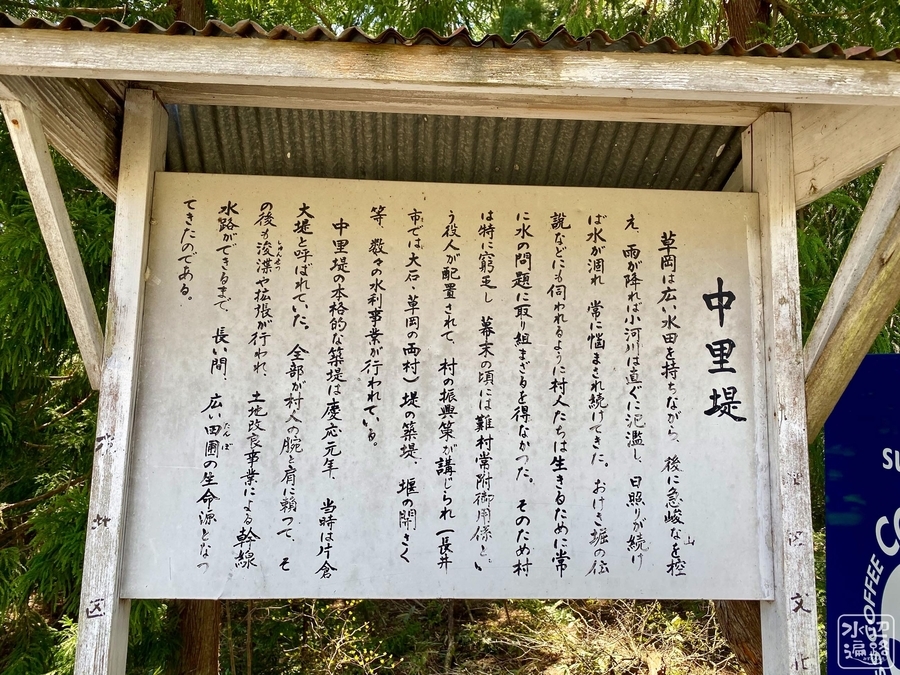 中里堤
草岡は広い水田を持ちながら、後に急峻な山を控
え、雨が降れば小河川は直ぐに氾濫し、日照りが続け
ば水が涸れ、常に悩まされ続けてきた。おけさ堀の伝
説などにも伺われるように村人たちは生きるために常
に水の問題に取り組まざるを得なかった。そのため村
は特に窮乏し、幕末の頃には難村常附御用係とい
う役人が配置されて、村の振興策が講じられ(長井
市では大石、草岡の両村)堤の築堤、堰の開さく
等、数々の水利事業が行われている。
中里堤の本格的な築堤は慶応元年、当時は片倉
大堤と呼ばれていた。全部が村人の腕と肩に頼って、そ
の後も浚渫や拡張が行われ、土地改良事業による幹線
水路ができるまで、長い間、広い田圃の生命源となっ
てきたのである。
しゅんせつ
たんぼ
区
文
SU
CO
COFFEE
水沼
遍路